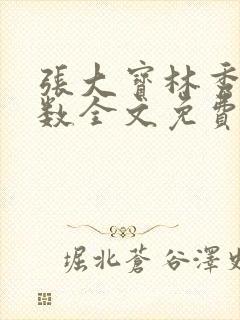 張大寶林秀
数全文免費
堀北蒼谷澤